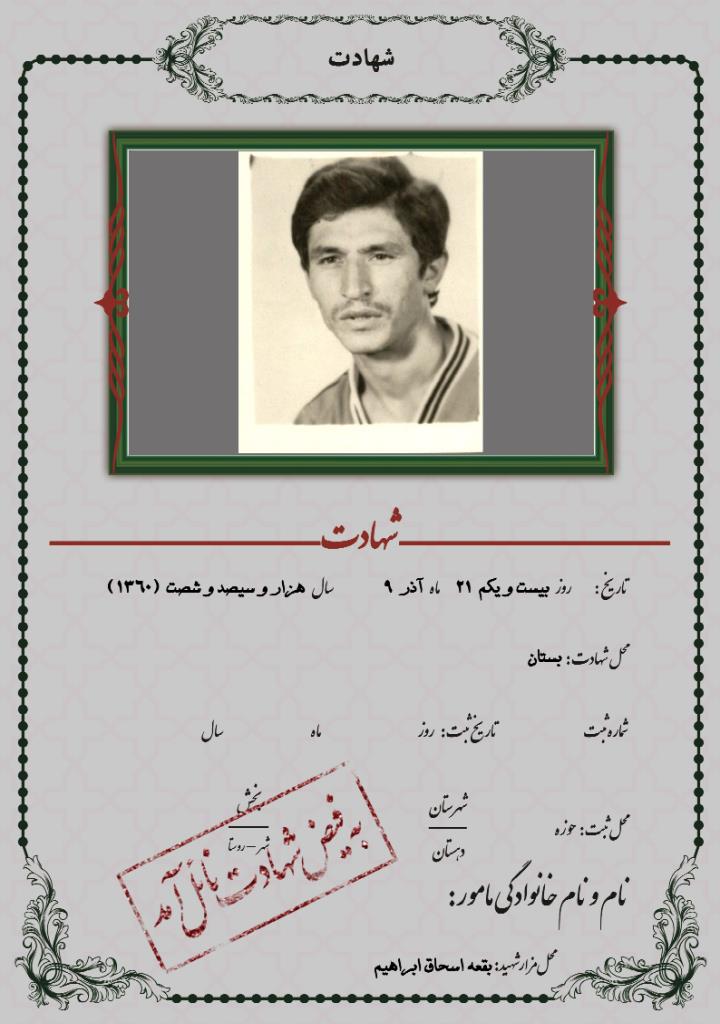 شهادت
شهادت
تاریخ: روز بیست و یکم ۲۱ ماه آذر ۹ سال هزار و سیصد و شصت (۱۳۶۰)
محل شهادت: بستان
شماره ثبت تاریخ ثبت: روز ماه سال
محل ثبت: حوزه شهرستان بخش
دهستان شهر-روستا
به فیض شهادت نائل آمد
نام و نام خانوادگی مامور:
محل مزار شهید: بقعه اسحاق ابراهیم